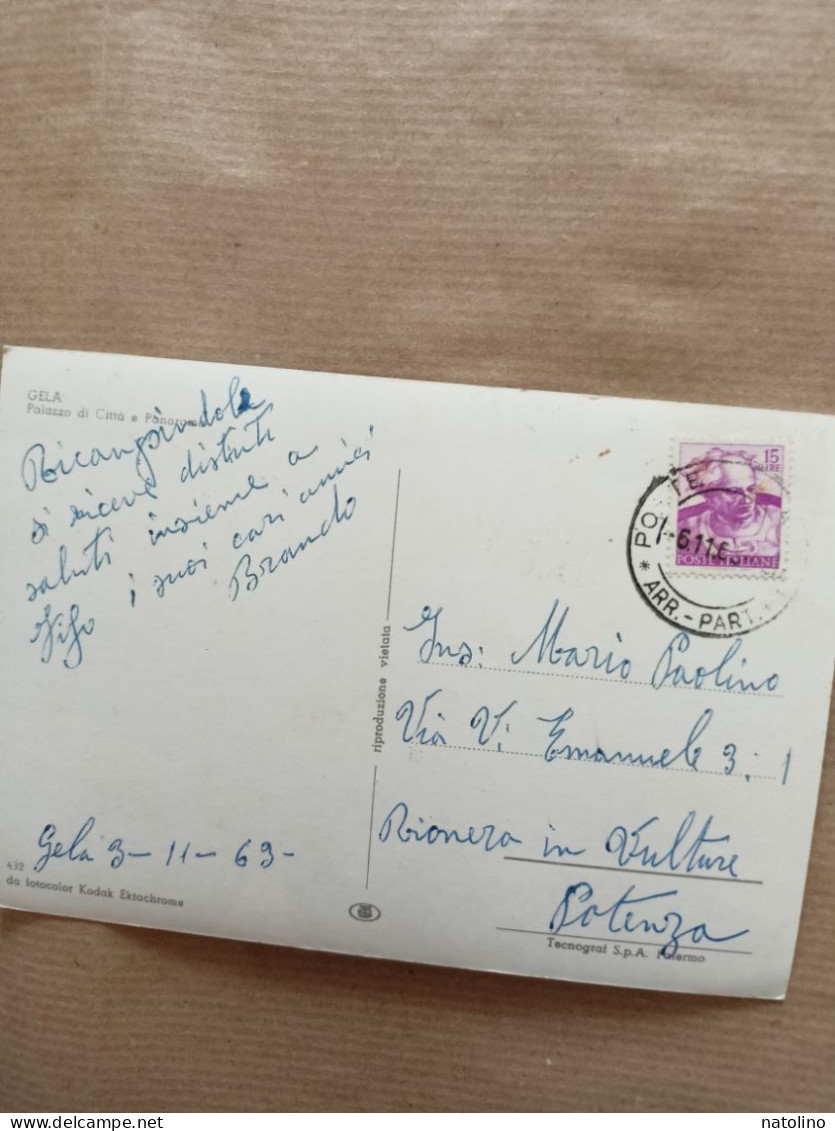 GELA
Palazzo di Città e Panorama
si riceve distinti
saluti insieme a
i suoi cari amici
Brando
Gela 3-11-63-
432
da fotocolor Kodak Ektachrome
riproduzione vietata
15
LIRE
POSTE ITALIANE
POSTE
-6.11.6
ARR.-PART.
Ins: Mario Paolino
Via V. Emanuele 3, 1
Rionero in Vulture
Potenza
Tecnograf S.p.A. Palermo
natolino